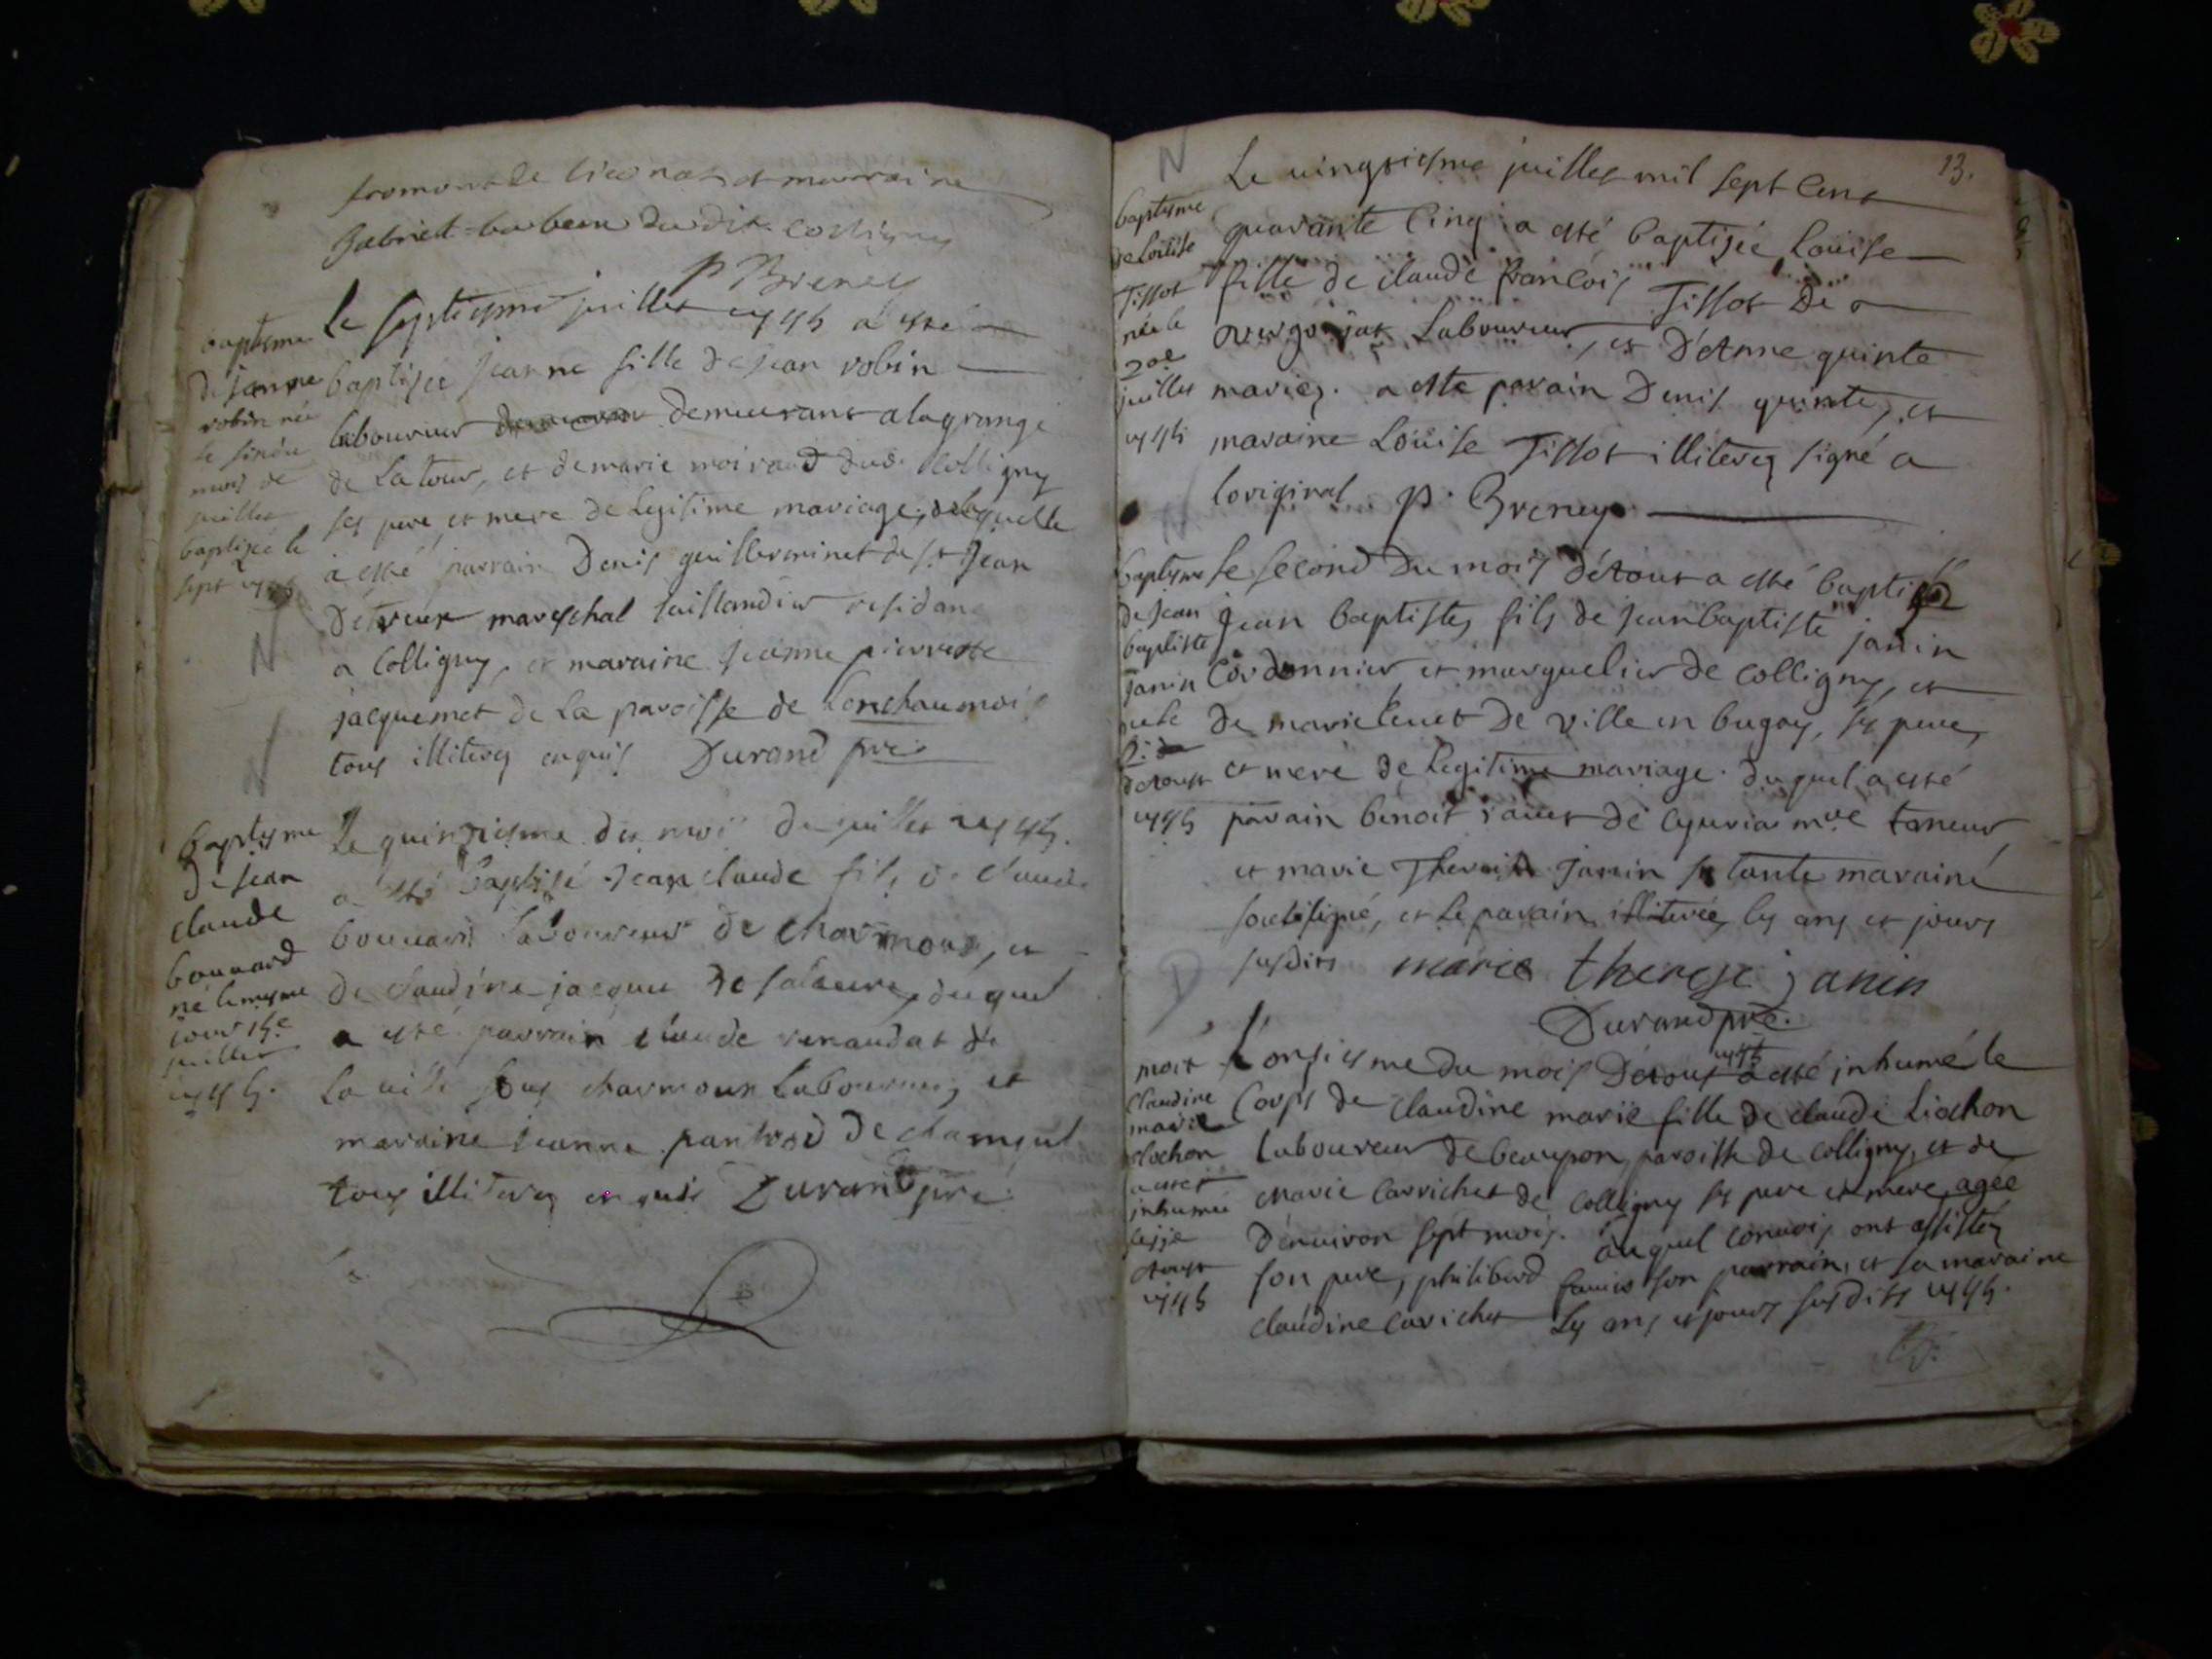 et marraine
du dit colligny
P Breney
baptesme
de jeanne
robin née
le six du
mois de
juillet
baptizée le
sept
Le septiesme juillet 1745 a esté
baptisée jeanne fille de jean robin
laboureur demeurant a la grange
de Latour, et de marie moiraud dud. Colligny
ses pere et mere de legitime mariage, de laquelle
a esté parrain Denis guillerminet de st jean
maréschal taillandier residant
a Colligny, et maraine jeanne pierrette
jacquemet de La paroisse de Lonchaumois
tous illiterez enquis Durand pre
N
N
baptesme
de jean
claude
bouvard
né le mesme
jour 15e
juillet
1745.
Le quinziesme du mois de juillet 1745.
a esté baptisé jean claude fils de claude
bouvard laboureur de charmoux, et
de claudine jacquet de duquel
a esté parrain claude renaudat de
La ville sous charmoux Laboureur, et
maraine jeanne de
tous illiterez enquis Durand pre
13.
N
baptesme
de Loüise
Tissot
née le
20e
juillet
1745
Le vingtiesme juillet mil sept Cent
quarante Cinq a esté baptisée Loüise
fille de claude François Tissot de
Laboureur, et D'etnne quinte
mariez. a este parain Denis quinte, et
maraine Loüise Tissot illiterez signé a
loriginal P. Breney
N
baptesme
de jean
baptiste
janin
né le
2.
d'aoust
1745
Le second du mois d'aoust a esté baptisé
jean baptiste, fils de jean baptiste janin
Cordonnier et marguelier de colligny, et
de marie de ville en bugey, ses pere,
et mere de legitime mariage. duquel a esté
parain benoit de Cyuria mre taneur,
et marie Therese janin sa tante maraine
soubsigné, et le parain illiterée les ans et jours
susdits marie therese janin
Durand pre.
D
mort
claudine
marie
liochon
inhumée
le 11e
aoust
1745
L'onsiesme du mois d'aoust 1745 a esté inhumé le
Corps de claudine marie fille de claude Liochon
laboureur de beaupon, paroisse de colligny, et de
marie Carrichet de Colligny ses pere et mere, agée
d'enuiron sept mois. auquel conuois ont assistéz
son pere, philiberd son parrain, et sa maraine
claudine Carichet Les ans et jours susdits 1745.